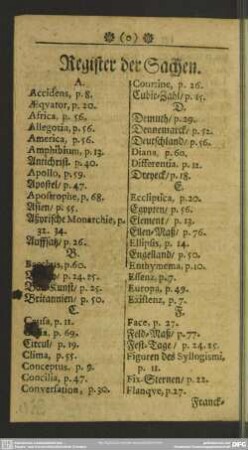 (o)
Register der Sachen.
A.
Accidens, p. 8.
Æqvator, p. 20.
Africa. p. 56.
Allegoria, p. 56.
America, p. 56.
Amphibium, p. 13.
Antichrist. p. 40.
Apollo, p. 59.
Apostel/ p. 47.
Apostrophe, p. 68.
Asien/ p. 55.
Assyrische Monarchie, p.
32. 34.
Aufssatz/ p. 26.
B.
p. 60.
p. 24. 25.
Kunst/ p. 25.
Britannien/ p. 50.
C.
Causa, p. 11.
p. 69.
Circul/ p. 19.
Clima, p. 55.
Conceptus. p. 9.
Concilia, p. 47.
Conversation, p. 30.
Courtine, p. 26.
Cubic-Zahl/ p. 15.
D.
Demuth/ p. 29.
Dennemarck/ p. 52.
Deutschland/ p. 56.
Diana, p. 60.
Differentia. p. 11.
Dreyeck/ p. 18.
E.
Ecclíptica, p. 20.
Egypten/ p. 56.
Element/ p. 13.
Ellen-Maß/ p. 76.
Ellipsis, p. 14.
Engelland/ p. 50.
Enthymema, p. 10.
Essenz, p. 7.
Europa, p. 49.
Existenz, p. 7.
F.
Face, p. 27.
Feld-Maß/ p. 77.
Fest-Tage/ p. 24. 25.
Figuren des Syllogismi,
p. 11.
Fix-Sternen/ p. 22.
Flanqve, p. 27.
Franck-